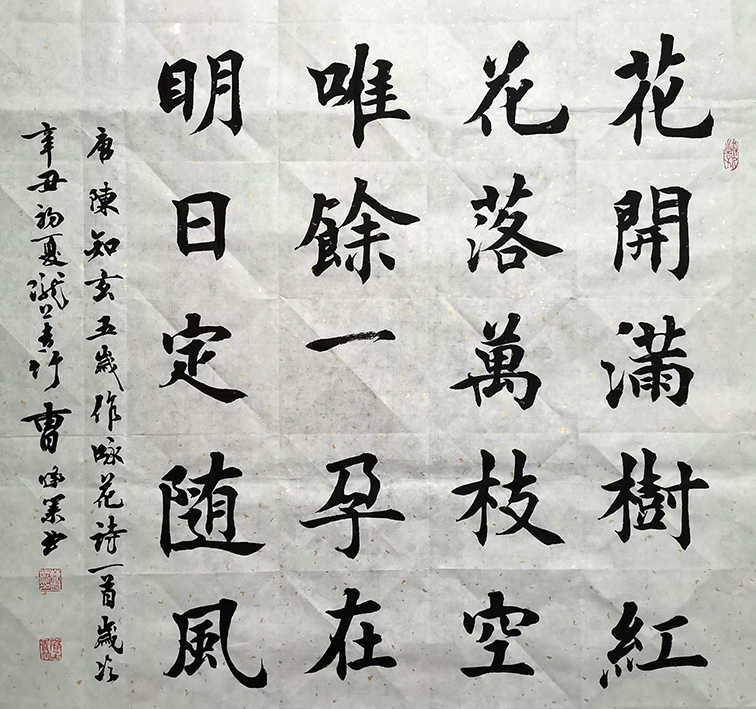 花開滿樹紅
花落萬枝空
唯餘一孕在
明日定随風
唐陳知玄五歲作咏花詩一首歲次
辛丑初夏 曹 书